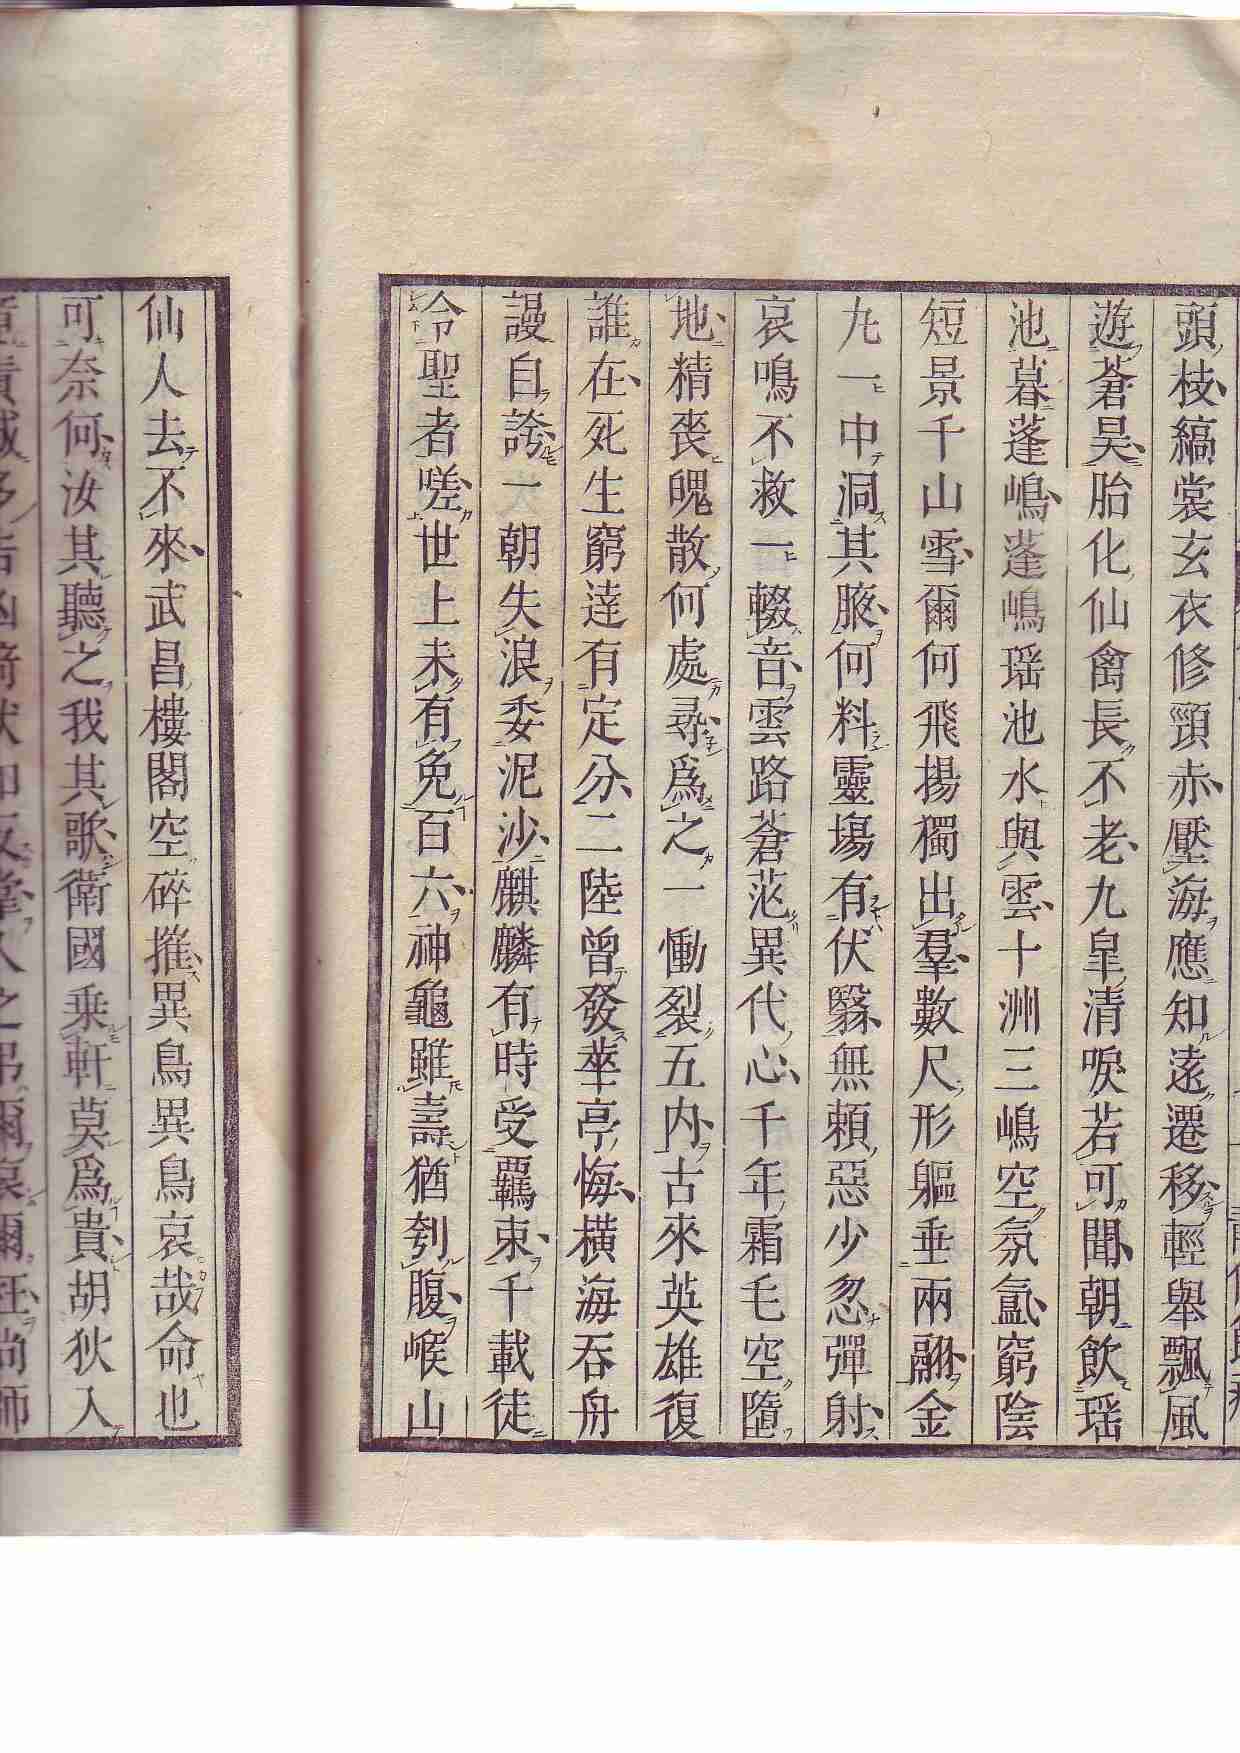 頭枝縞裳玄衣修頸赤壓海應知遠遷移輕舉飄風
遊蒼昊胎化仙禽長不老九皐清唳若可聞朝飲瑶
池暮蓬嶋蓬嶋瑶池水與雲十洲三嶋空氛氳窮陰
短景千山雪爾何飛揚獨出羣數尺形軀垂兩翮金
九一中洞其腋何料靈場有伏翳無賴惡少忽彈射
哀鳴不救一輟音雲路蒼茫異代心千年霜毛空墮
地精喪魄散何處尋爲之一慟裂五内古來英雄復
誰在死生窮達有定分二陸曾發華亭悔橫海吞舟
謾自誇一朝失浪委泥沙麒麟有時受羈束千載徒
令聖者嗟世上未有免百六神龜雖壽猶刳腹緱山
仙人去不來武昌樓閣空碎摧異鳥異鳥哀哉命也
可奈何汝其聽之我其歌衛國乘軒莫爲貴胡狄入